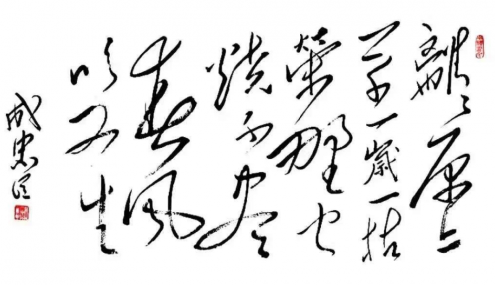 離離原上
草一歲一枯
榮野火
燒不盡
春風
吹又生